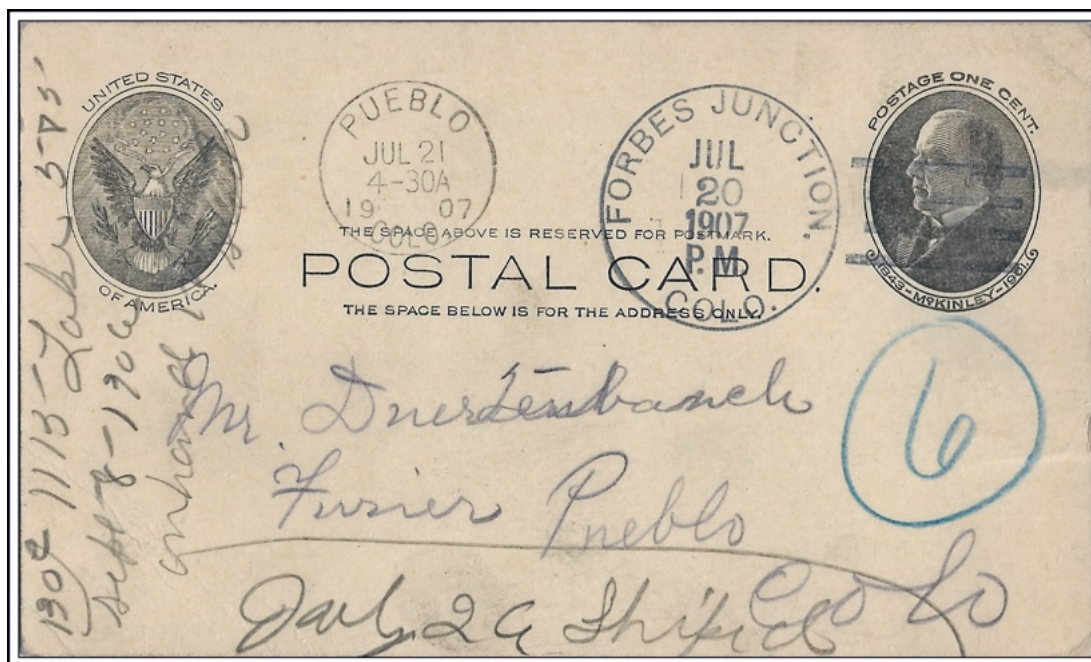 UNITED STATES
OF AMERICA.
PUEBLO
JUL 21
4-30A
19 07
COLO
FORBES JUNCTION,
JUL
20
1907
P.M.
COLO.
POSTAGE ONE CENT.
1843-McKINLEY-1901.
THE SPACE ABOVE IS RESERVED FOR POSTMARK.
POSTAL CARD.
THE SPACE BELOW IS FOR THE ADDRESS ONLY.
6
Mr.
Furier Pueblo
Colo
July 29 Shiped
1902 1115- Lake
Sept 8-1906
on hand